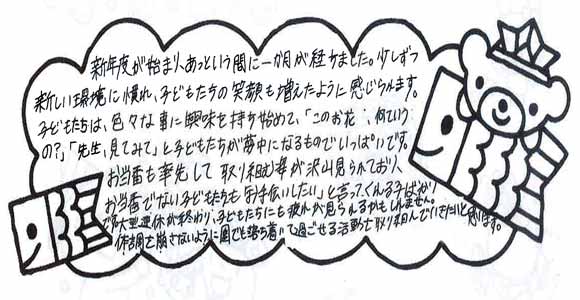 新年度が始まりあっという間に一か月が経ちました。少しずつ
新しい環境に慣れ、子どもたちの笑顔も増えたように感じられます。
子どもたちは、色々な事に興味を持ち始めて、「このお花、何ていう
の？」「先生、見てみて」と子どもたちが夢中になるものでいっぱいです。
お当番も率先して取り組む姿が沢山見られており
お当番でない子どもたちも「お手伝いしたい」と言ってくれる子ばかり
大型連休が終わり、子どもたちにも疲れが見られるかもしれません。
体調を崩さないように園でも落ち着いて過ごせる活動を取り組んでいきたいと思います。